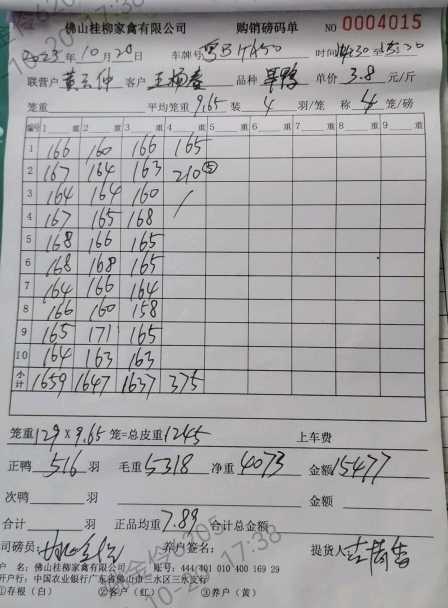 佛山桂柳家禽有限公司 购销磅码单 NO 0004015
2023年10月20日 车牌号 时间14:30至
联营户 黄云仲 客户 王 品种 单价 3.8 元/斤
笼重 平均笼重 9.65 装 4 羽/笼 称 4 笼/磅
编号 1 重 2 重 3 重 4 重 5 重 6 重 7 重 8 重 9 重
1 166 160 166 165
2 167 164 163 210 ⑤
3 164 164 160 /
4 167 165 168
5 168 166 165
6 168 168 165
7 164 166 164
8 166 160 158
9 165 171 165
10 164 163 163
小计 1659 1647 1637 375
笼重 129 X 9.65 笼=总皮重 1245 上车费
正鸭 516 羽 毛重 5318 净重 4073 金额 15477
次鸭 羽 金额
合计 羽 正品均重 7.89 合计总金额
司磅员: 养户签名: 提货人
户 名: 佛山桂柳家禽有限公司 账号: 444 401 010 400 169 29
开户行: 中国农业银行广东省佛山市三水区三水支行
①存根（白） ②客户（红） ③养户（黄）